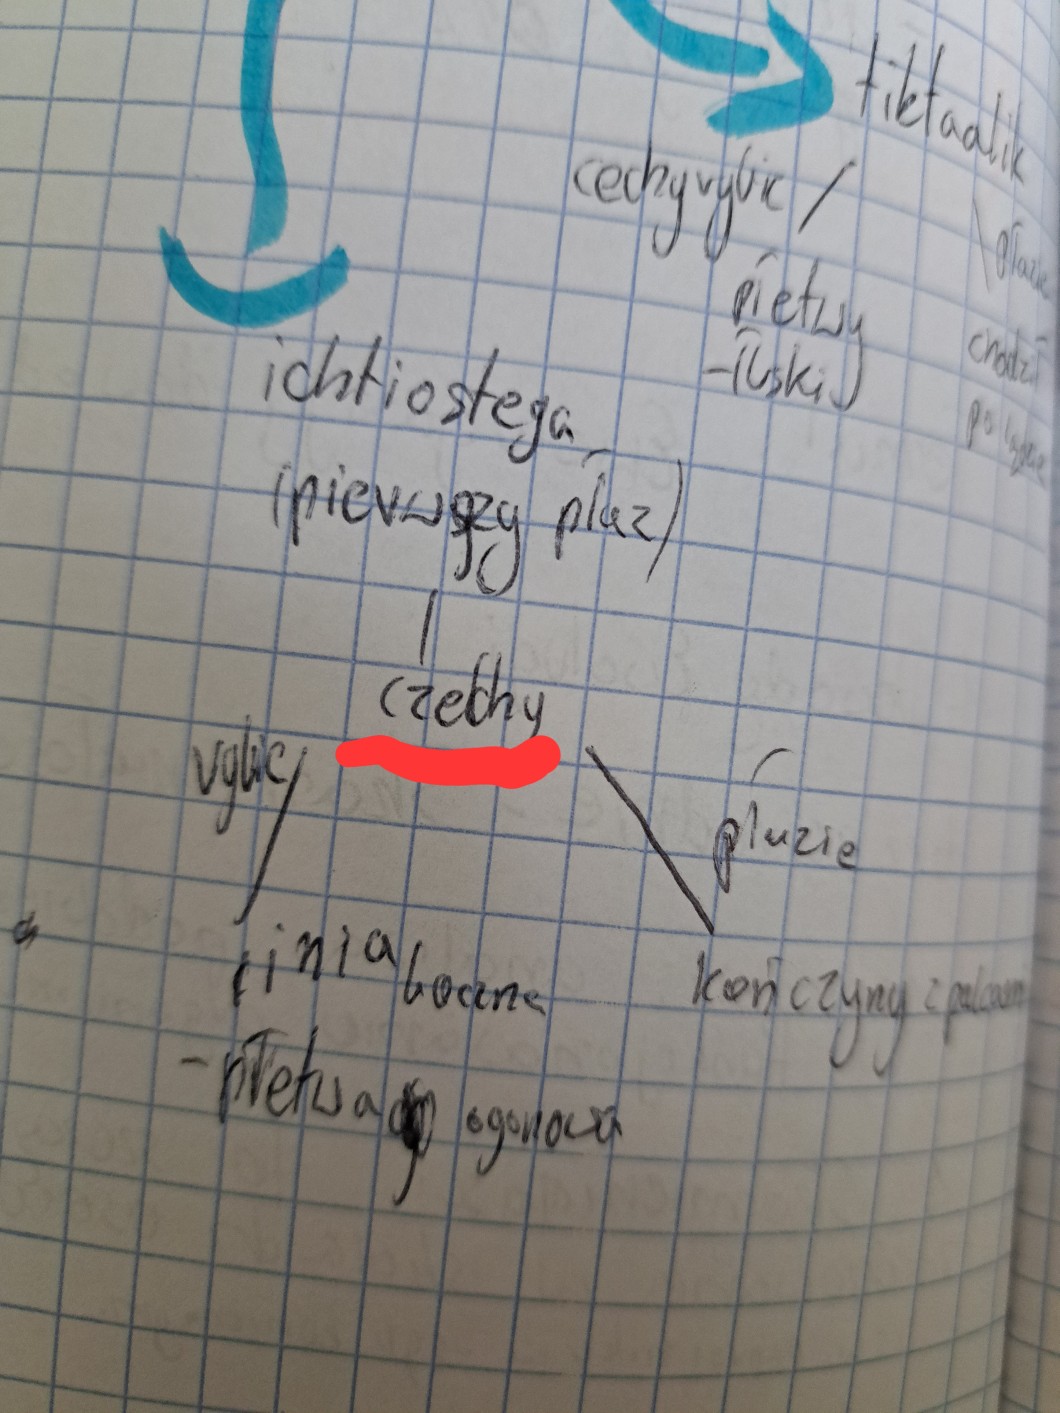 tiktaalik
cechy rybie
płazie
płetwy
-łuski
chodził
po lądzie
ichtiostega
(pierwszy płaz)
czechy
rybie
płazie
linia boczna
kończyny z palcami
-płetwa ogonowa